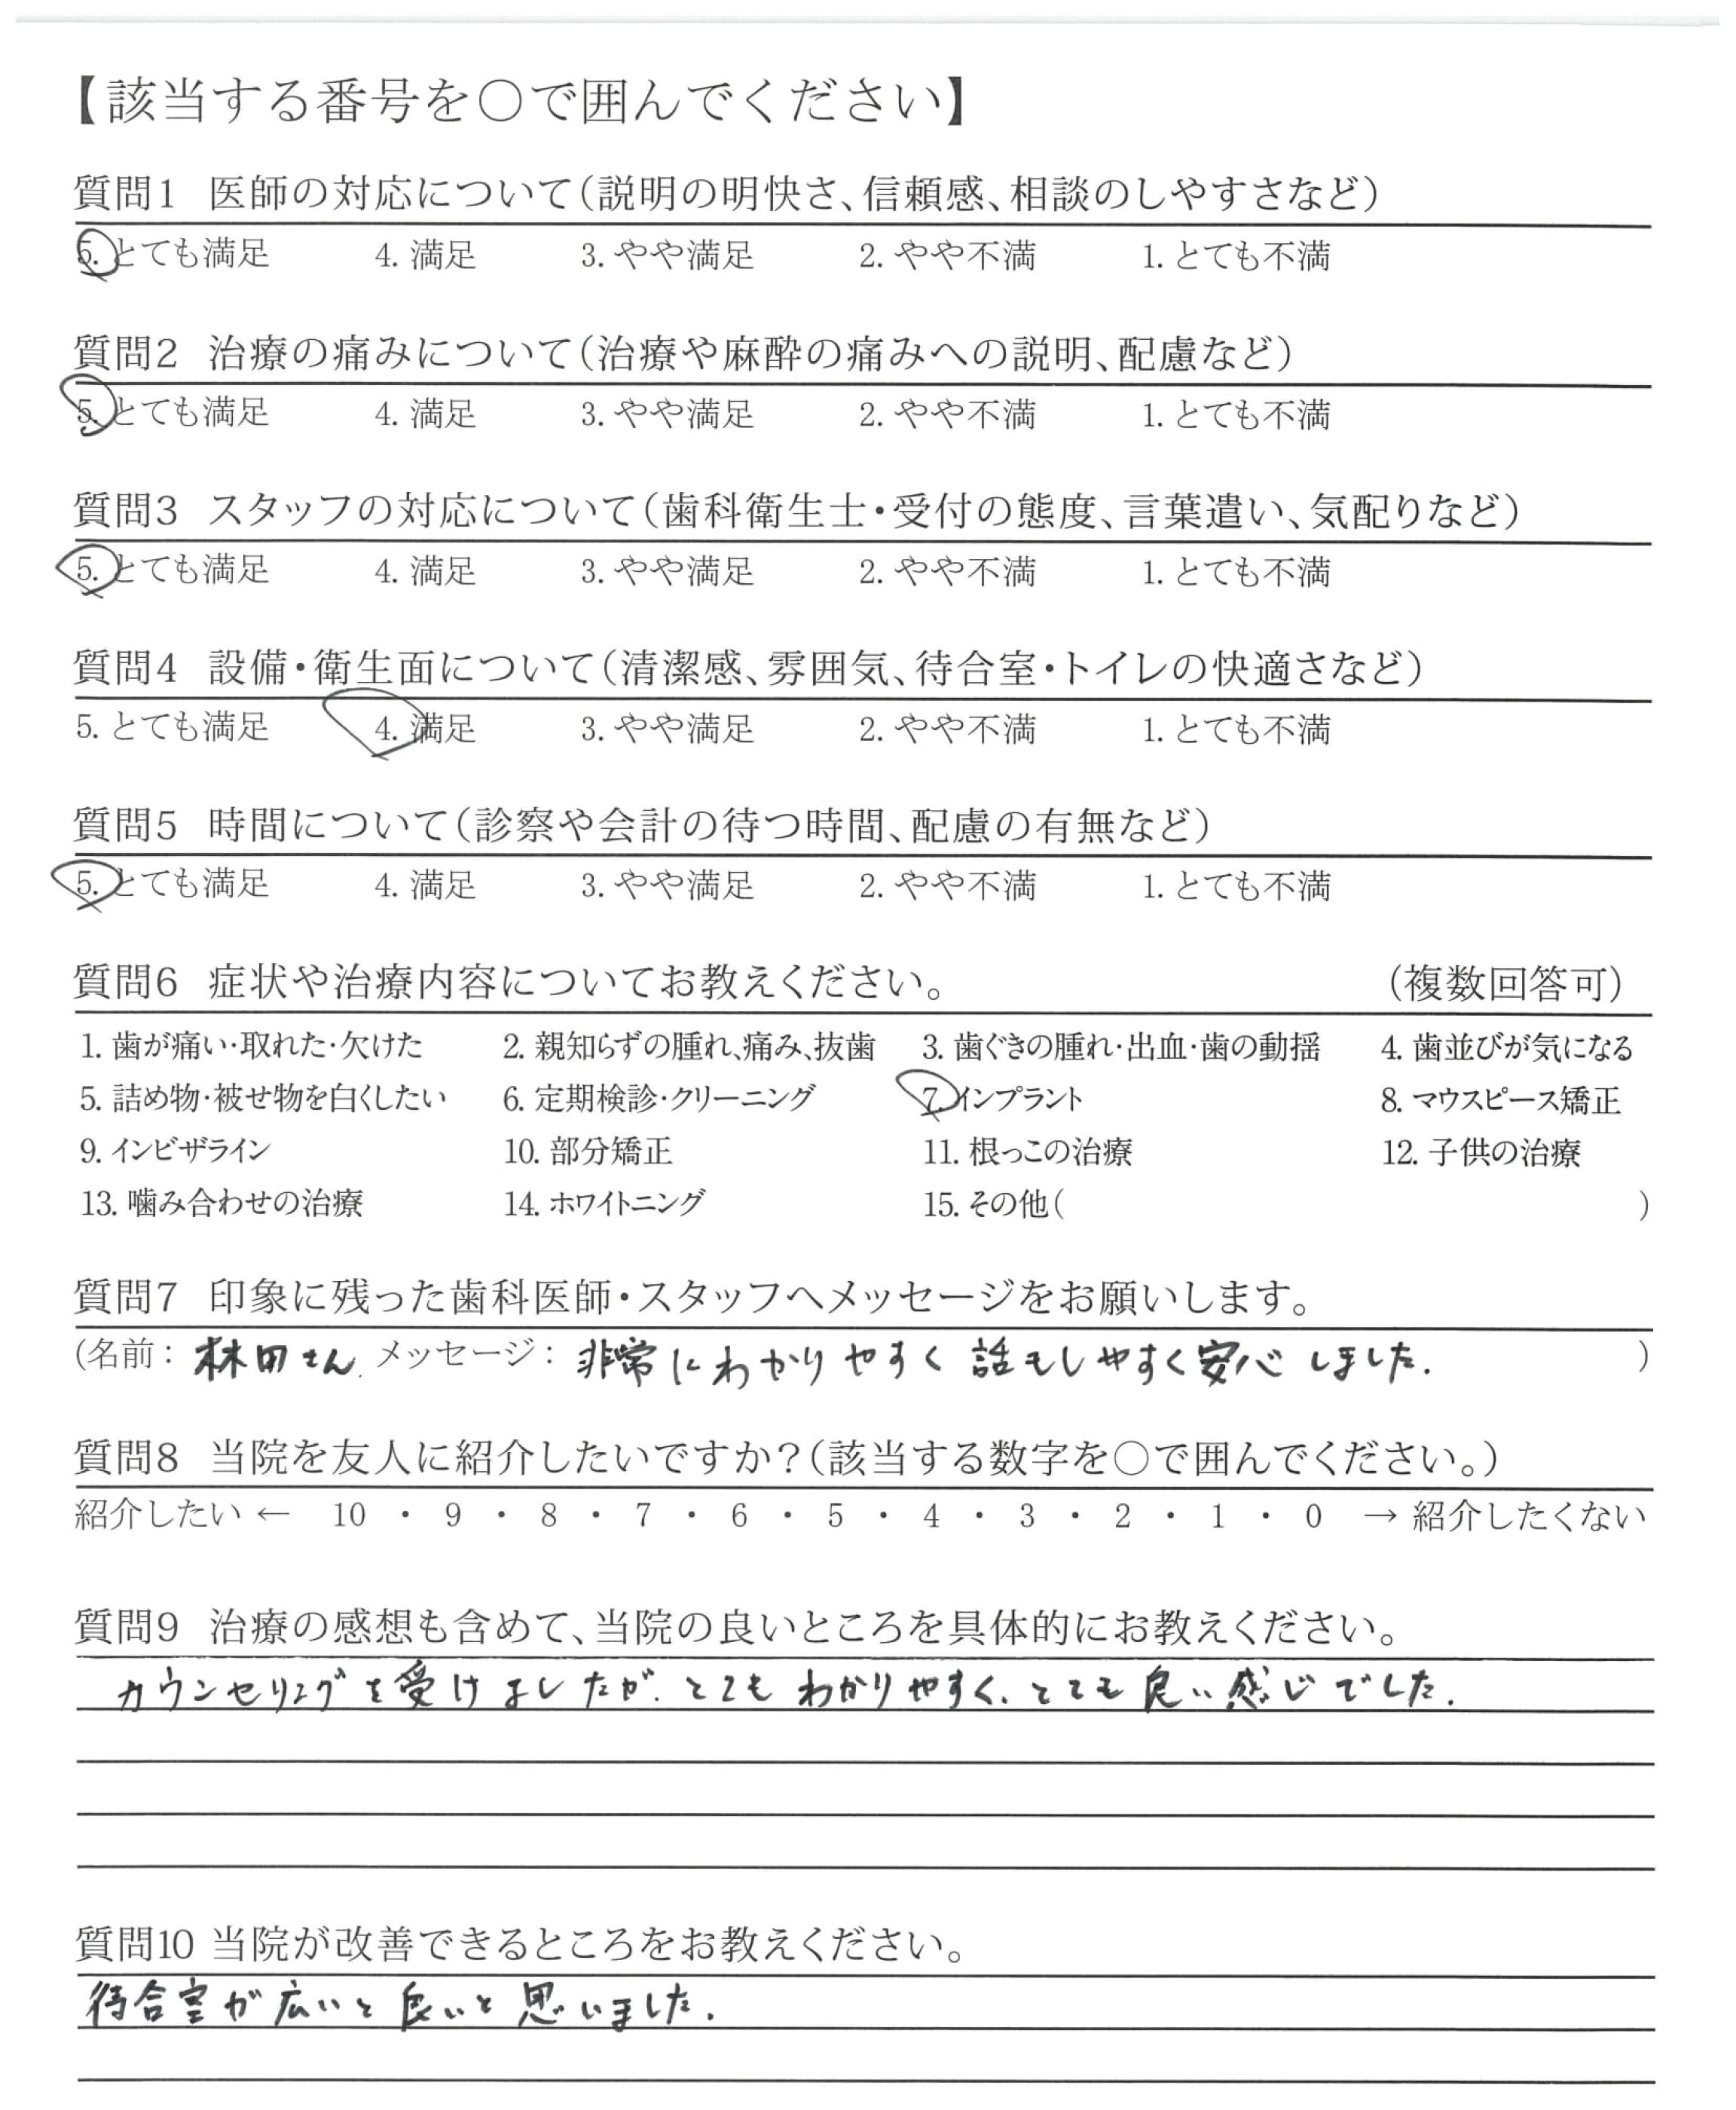 【該当する番号を○で囲んでください】
質問1 医師の対応について(説明の明快さ、信頼感、相談のしやすさなど)
5. とても満足 4. 満足 3. やや満足 2. やや不満 1. とても不満
質問2 治療の痛みについて(治療や麻酔の痛みへの説明、配慮など)
5. とても満足 4. 満足 3. やや満足 2. やや不満 1. とても不満
質問3 スタッフの対応について(歯科衛生士・受付の態度、言葉遣い、気配りなど)
5. とても満足 4. 満足 3. やや満足 2. やや不満 1. とても不満
質問4 設備・衛生面について(清潔感、雰囲気、待合室・トイレの快適さなど)
5. とても満足 4. 満足 3. やや満足 2. やや不満 1. とても不満
質問5 時間について(診察や会計の待つ時間、配慮の有無など)
5. とても満足 4. 満足 3. やや満足 2. やや不満 1. とても不満
質問6 症状や治療内容についてお教えください。 (複数回答可)
1. 歯が痛い・取れた・欠けた 2. 親知らずの腫れ、痛み、抜歯 3. 歯ぐきの腫れ・出血・歯の動揺 4. 歯並びが気になる
5. 詰め物・被せ物を白くしたい 6. 定期検診・クリーニング 7. インプラント 8. マウスピース矯正
9. インビザライン 10. 部分矯正 11. 根っこの治療 12. 子供の治療
13. 噛み合わせの治療 14. ホワイトニング 15. その他( )
質問7 印象に残った歯科医師・スタッフへメッセージをお願いします。
(名前: 林田さん. メッセージ: 非常にわかりやすく 話もしやすく安心しました. )
質問8 当院を友人に紹介したいですか?(該当する数字を○で囲んでください。)
紹介したい ← 10 ・ 9 ・ 8 ・ 7 ・ 6 ・ 5 ・ 4 ・ 3 ・ 2 ・ 1 ・ 0 → 紹介したくない
質問9 治療の感想も含めて、当院の良いところを具体的にお教えください。
カウンセリングを受けましたが、とてもわかりやすく、とても良い感じでした.
質問10 当院が改善できるところをお教えください。
待合室が広いと良いと思いました.